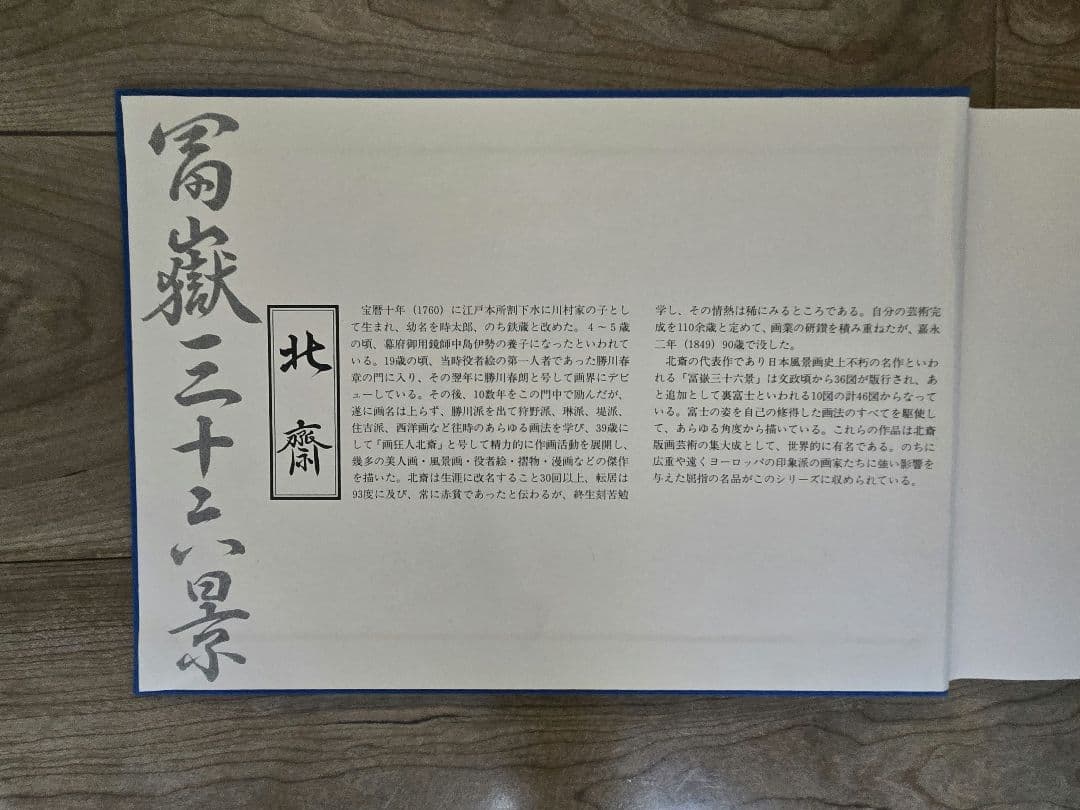 冨嶽三十六景
北齋
宝暦十年（1760）に江戸本所割下水に川村家の子とし
て生まれ、幼名を時太郎、のち鉄蔵と改めた。４～５歳
の頃、幕府御用鏡師中島伊勢の養子になったといわれて
いる。19歳の頃、当時役者絵の第一人者であった勝川春
章の門に入り、その翌年に勝川春朗と号して画界にデビ
ューしている。その後、10数年をこの門中で励んだが、
遂に画名は上らず、勝川派を出て狩野派、琳派、堤派、
住吉派、西洋画など往時のあらゆる画法を学び、39歳に
して「画狂人北斎」と号して精力的に作画活動を展開し、
幾多の美人画・風景画・役者絵・摺物・漫画などの傑作
を描いた。北斎は生涯に改名すること30回以上、転居は
93度に及び、常に赤貧であったと伝わるが、終生刻苦勉
学し、その情熱は稀にみるところである。自分の芸術完
成を110余歳と定めて、画業の研鑽を積み重ねたが、嘉永
二年（1849）90歳で没した。
北斎の代表作であり日本風景画史上不朽の名作といわ
れる「冨嶽三十六景」は文政頃から36図が版行され、あ
と追加として裏富士といわれる10図の計46図からなって
いる。富士の姿を自己の修得した画法のすべてを駆使し
て、あらゆる角度から描いている。これらの作品は北斎
版画芸術の集大成として、世界的に有名である。のちに
広重や遠くヨーロッパの印象派の画家たちに強い影響を
与えた屈指の名品がこのシリーズに収められている。